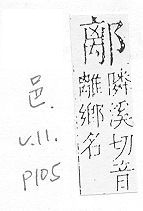 隣溪切音
離鄉名
邑.
v.11.
p105